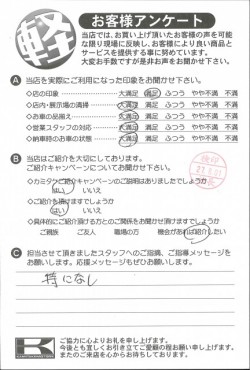 軽
お客様アンケート
当店では、お買い上げ頂いたお客様の声を可能
な限り現場に反映し、お客様により良い商品と
サービスを提供する事に努めています。
大変お手数ですが是非お声をお聞かせ下さい。
A 当店を実際にご利用になった印象をお聞かせ下さい。
○店の印象 大満足 満足 ふつう やや不満 不満
○店内・展示場の清掃 大満足 満足 ふつう やや不満 不満
○お車の品揃え 大満足 満足 ふつう やや不満 不満
○営業スタッフの対応 大満足 満足 ふつう やや不満 不満
○納車時のお車の状態 大満足 満足 ふつう やや不満 不満
B 当店はご紹介を大切にしております。
ご紹介キャンペーンについてお聞かせ下さい
○カミタウンご紹介キャンペーンのご説明はありましたでしょうか
はい いいえ
○ご紹介を頂けますでしょうか
はい いいえ
○具体的にご紹介頂ける方とのご関係をお聞かせ頂けますでしょうか
ご親族 ご友人 職場の方 機会があれば紹介したい
C 担当させて頂きましたスタッフへのご指摘、ご指導メッセージを
お願いします。応援メッセージもぜひお願いします。
特になし
ご協力に心よりお礼を申し上げます。
今後とも宜しくお引き立てご愛顧の程お願い申し上げます。
またのご来店を心からお待ちしております。